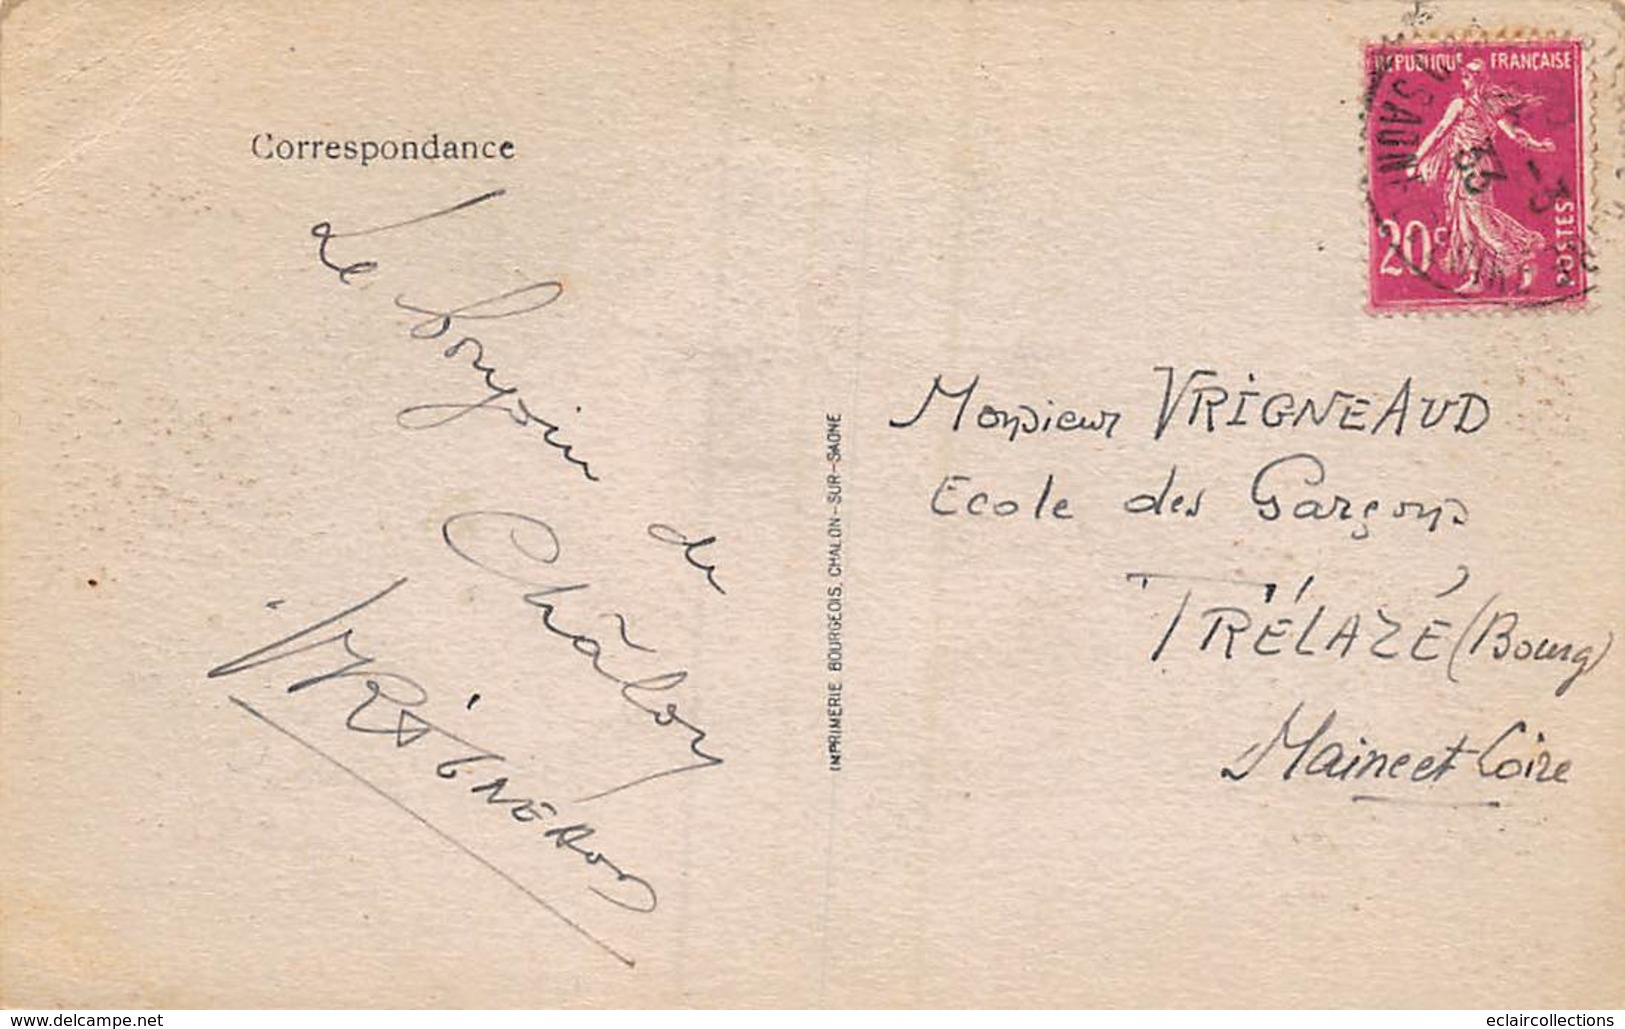 Correspondance
Le bonjour
de
Châlon
VRIGNEAUD
IMPRIMERIE BOURGEOIS, CHALON-SUR-SAONE
REPUBLIQUE FRANÇAISE
20c
POSTES
SAON
-3
33
Monsieur VRIGNEAUD
Ecole des Garçons
TRÉLAZÉ (Bourg)
Maine et Loire
www.delcampe.net
eclaircollections